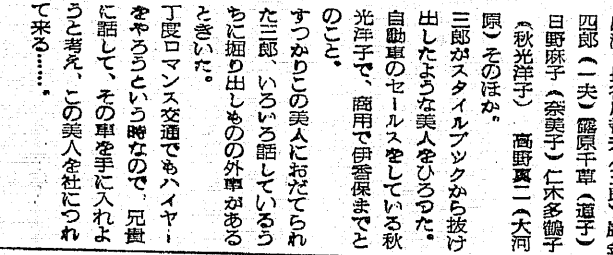 四郎(一夫)露原千草(道子)
日野麻子(奈美子)仁木多鶴子
(秋光洋子) 高野真二(大河
原)そのほか。
三郎がスタイルブックから抜け
出したような美人をひろつた。
自動車のセールスをしている秋
光洋子で、商用で伊香保までと
のこと。
すつかりこの美人におだてられ
た三郎、いろいろ話しているう
ちに掘り出しものの外車がある
ときいた。
丁度ロマンス交通でもハイヤー
をやろうという時なので、兄貴
に話して、その車を手に入れよ
うと考え、この美人を社につれ
て来る……。